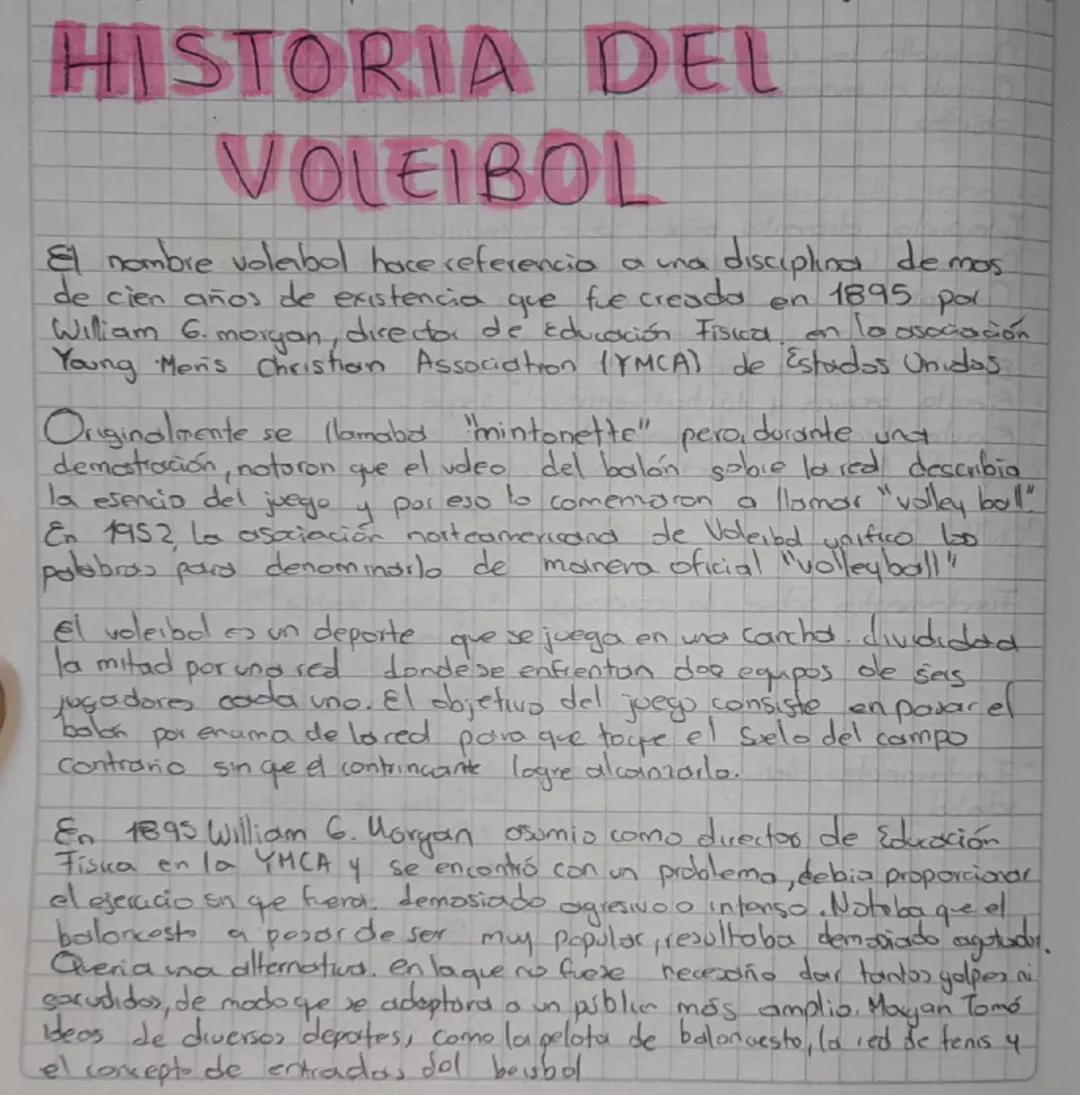 HISTORIA DEL
VOLEIBOL
El nombre voleibol hace referencia a una disciplina de mas
de cien años de existencia que fue creada en 1895 por
William G. morgan, director de Educación Fisica, en la asociación
Young Men's Christian Association (YMCA) de Estados Unidos
Originalmente se llamaba "mintonette" pero, durante una
demostración, notaron que el voleo del balón sobre la red describia
la esencia del juego y por eso lo comenzaron a llamar "volley ball".
En 1952, la asociación norteamericana de Voleibol unifico las
palabras para denominarlo de manera oficial "volleyball"
El voleibol es un deporte que se juega en una cancha. dividida a
la mitad por una red donde se enfrentan dos equipos de seis
jugadores cada uno. El objetivo del juego consiste en pasar el
balón por encima de la red para que toque el suelo del campo
contrario sin que el contrincante logre alcanzarlo.
En 1895 William G. Morgan asumio como director de Educación
Fisica en la YMCA y se encontró con un problema, debia proporcionar
el ejercicio sin que fuera. demasiado agresivo o intenso. Notaba que el
baloncesto a pesar de ser muy popular, resultaba demasiado agotador.
Queria una alternativa. en la que no fuese necesario dar tantos golpes ni
sacudidas, de modo que se adaptara a un público más amplio. Morgan Tomó
ideas de diversos deportes, como la pelota de baloncesto, la red de tenis y
el concepto de entradas del beisbol